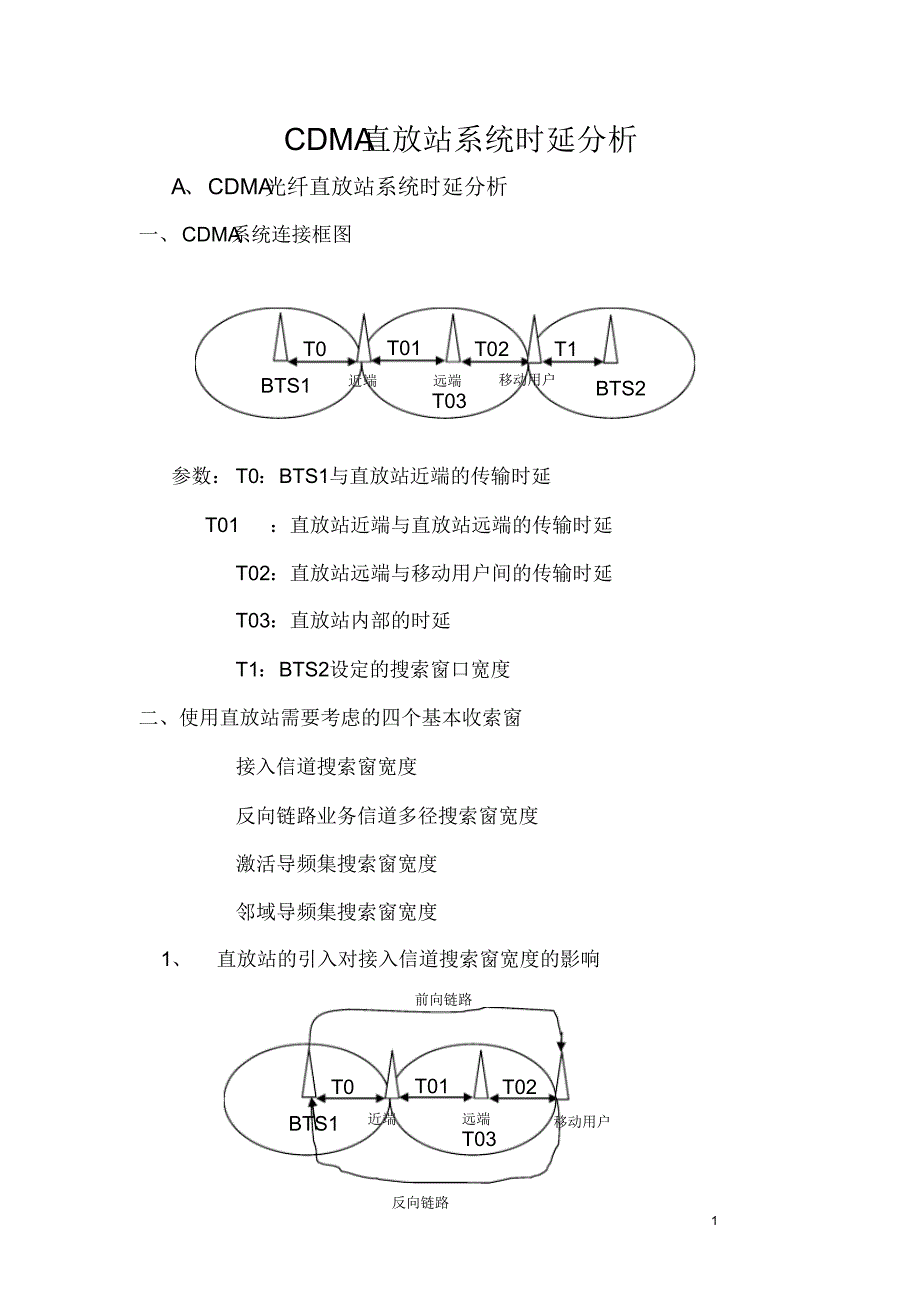 CDMA直放站系统时延分析
A、CDMA光纤直放站系统时延分析
一、CDMA系统连接框图
T0 T01 T02 T1
BTS1 近端 远端 移动用户 BTS2
T03
参数：T0：BTS1与直放站近端的传输时延
T01 ：直放站近端与直放站远端的传输时延
T02：直放站远端与移动用户间的传输时延
T03：直放站内部的时延
T1：BTS2设定的搜索窗口宽度
二、使用直放站需要考虑的四个基本收索窗
接入信道搜索窗宽度
反向链路业务信道多径搜索窗宽度
激活导频集搜索窗宽度
邻域导频集搜索窗宽度
1、 直放站的引入对接入信道搜索窗宽度的影响
前向链路
T0 T01 T02
BTS1 近端 远端 移动用户
T03
反向链路
1